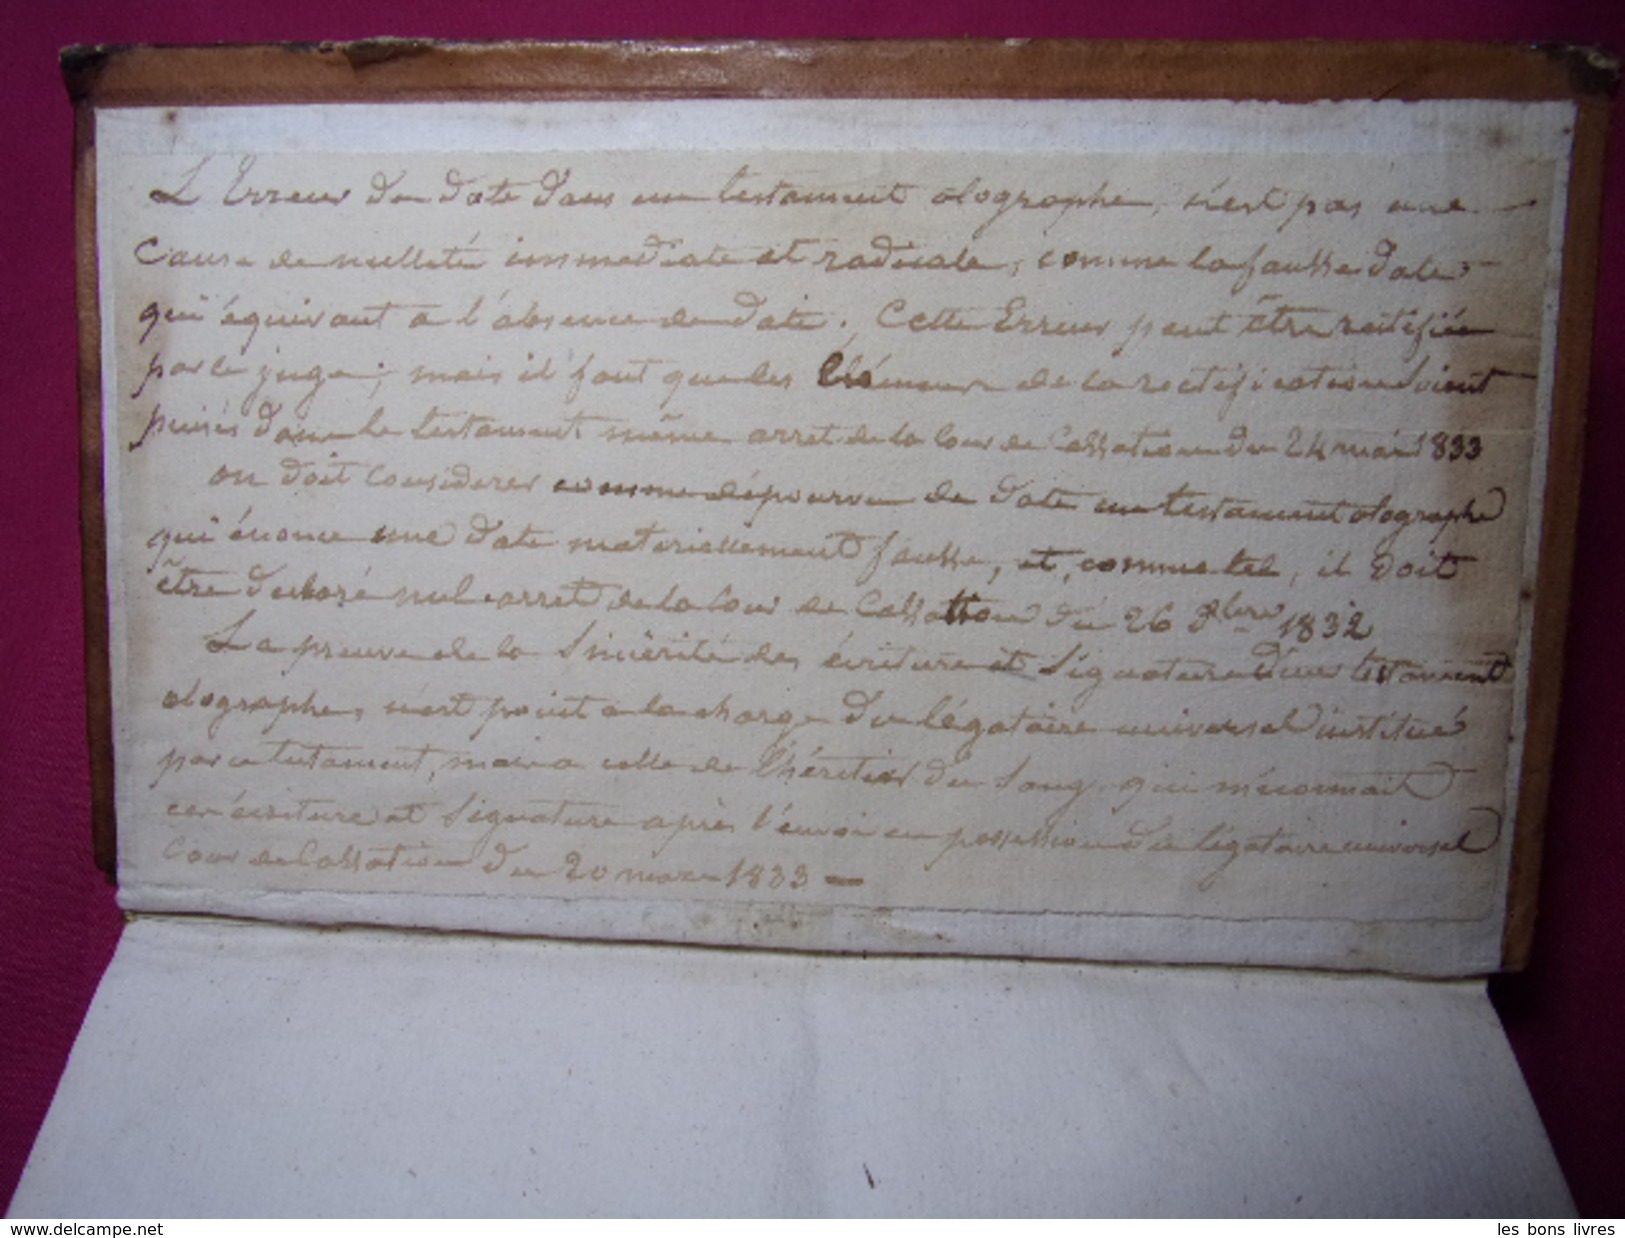 L'Erreur de date dans un testament olographe, n'est pas une
Cause de nullité immediate et radicale, comme la fausse date
qui équivaut a l'absence de date. Cette Erreur peut être rectifiée
par le juge; mais il faut que les Élémens de la rectification soient
puisés dans le testament même arret de la Cour de Cassation du 24 mai 1833
on doit considerer comme dépourvu de date un testament olographe
qui énonce une date materiellement fausse, et, comme tel, il doit
être declaré nul. arret de la Cour de Cassation du 26 Xbre 1832
La preuve de la Sincérité des écriture et signature d'un testament
olographe, n'est point a la charge du légataire universel institué
par ce testament, mais a celle de l'héritier du sang, qui méconnait
ces écriture et Signature après l'envoi en possession du légataire universel
Cour de Cassation du 20 mars 1833 —
www.delcampe.net
les bons livres